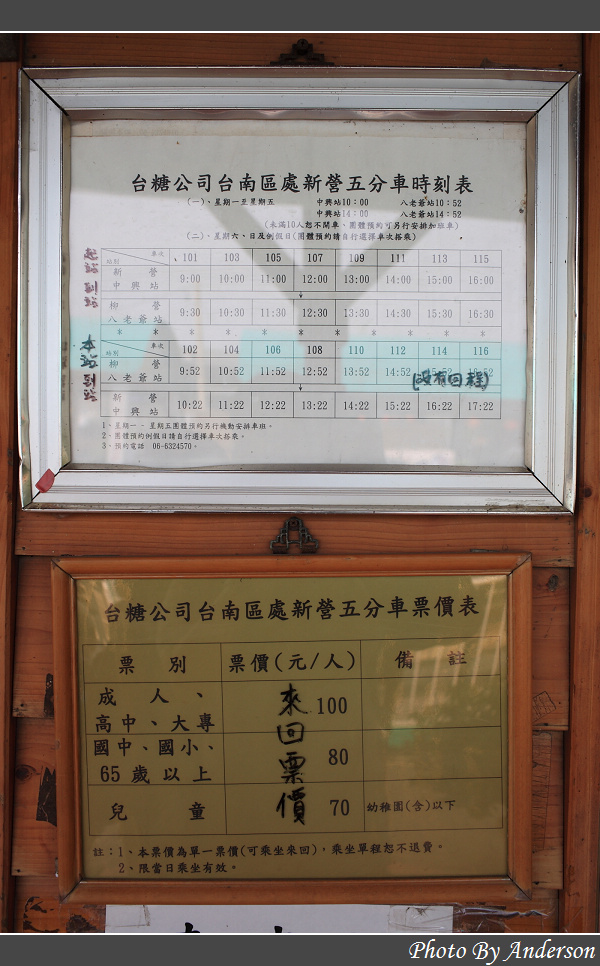 台糖公司台南區處新營五分車時刻表
(一)、星期一至星期五 中興站10:00 八老爺站10:52
中興站14:00 八老爺站14:52
(未滿10人恕不開車、團體預約可另行安排加班車)
(二)、星期六、日及例假日(團體預約請自行選擇車次搭乘)
起站到站
車次 站別 101 103 105 107 109 111 113 115
新營 中興站 9:00 10:00 11:00 12:00 13:00 14:00 15:00 16:00
柳營 八老爺站 9:30 10:30 11:30 12:30 13:30 14:30 15:30 16:30
* * * * * * * * *
本站到站
車次 站別 102 104 106 108 110 112 114 116
柳營 八老爺站 9:52 10:52 11:52 12:52 13:52 14:52
(沒有回程)
新營 中興站 10:22 11:22 12:22 13:22 14:22 15:22 16:22 17:22
1、星期一-星期五團體預約另行機動安排車班。
2、團體預約例假日請自行選擇車次搭乘。
3、預約電話 06-6324570。
台糖公司台南區處新營五分車票價表
票別 票價(元/人) 備註
成人、高中、大專 100
國中、國小、65歲以上 80
兒童 70 幼稚園(含)以下
來回票價
註:1、本票價為單一票價(可乘坐來回),乘坐單程恕不退費。
2、限當日乘坐有效。
Photo By Anderson